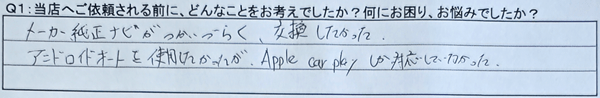 Q1:当店へご依頼される前に、どんなことをお考えでしたか?何にお困り、お悩みでしたか?
メーカー純正ナビがつかいづらく、交換したかった。
アンドロイドオートを使用したかったが、Apple car play しか対応していなかった。